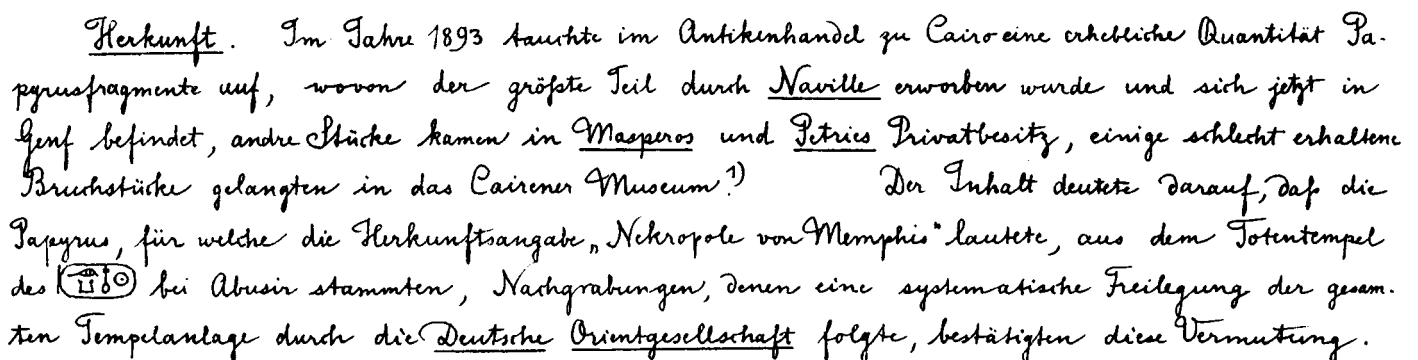 Herkunft. Im Jahre 1893 tauchte im Antikenhandel zu Cairo eine erhebliche Quantität Pa-
pyrusfragmente auf, wovon der größte Teil durch Naville erworben wurde und sich jetzt in
Genf befindet, andre Stücke kamen in Masperos und Petries Privatbesitz, einige schlecht erhaltene
Bruchstücke gelangten in das Cairener Museum 1) Der Inhalt deutete darauf, daß die
Papyrus, für welche die Herkunftsangabe „Nekropole von Memphis" lautete, aus dem Totentempel
des bei Abusir stammten, Nachgrabungen, denen eine systematische Freilegung der gesam-
ten Tempelanlage durch die Deutsche Orientgesellschaft folgte, bestätigten diese Vermutung.